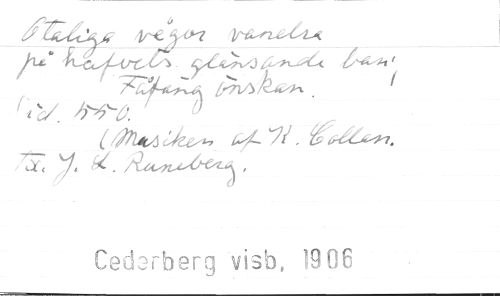 Otaliga vågor vandra
på hafvets glänsande ban;
Fåfäng önskan.
id. 550.
(Musiken af K. Collan.
Tx. J. L. Runeberg.
Cederberg visb, 1906